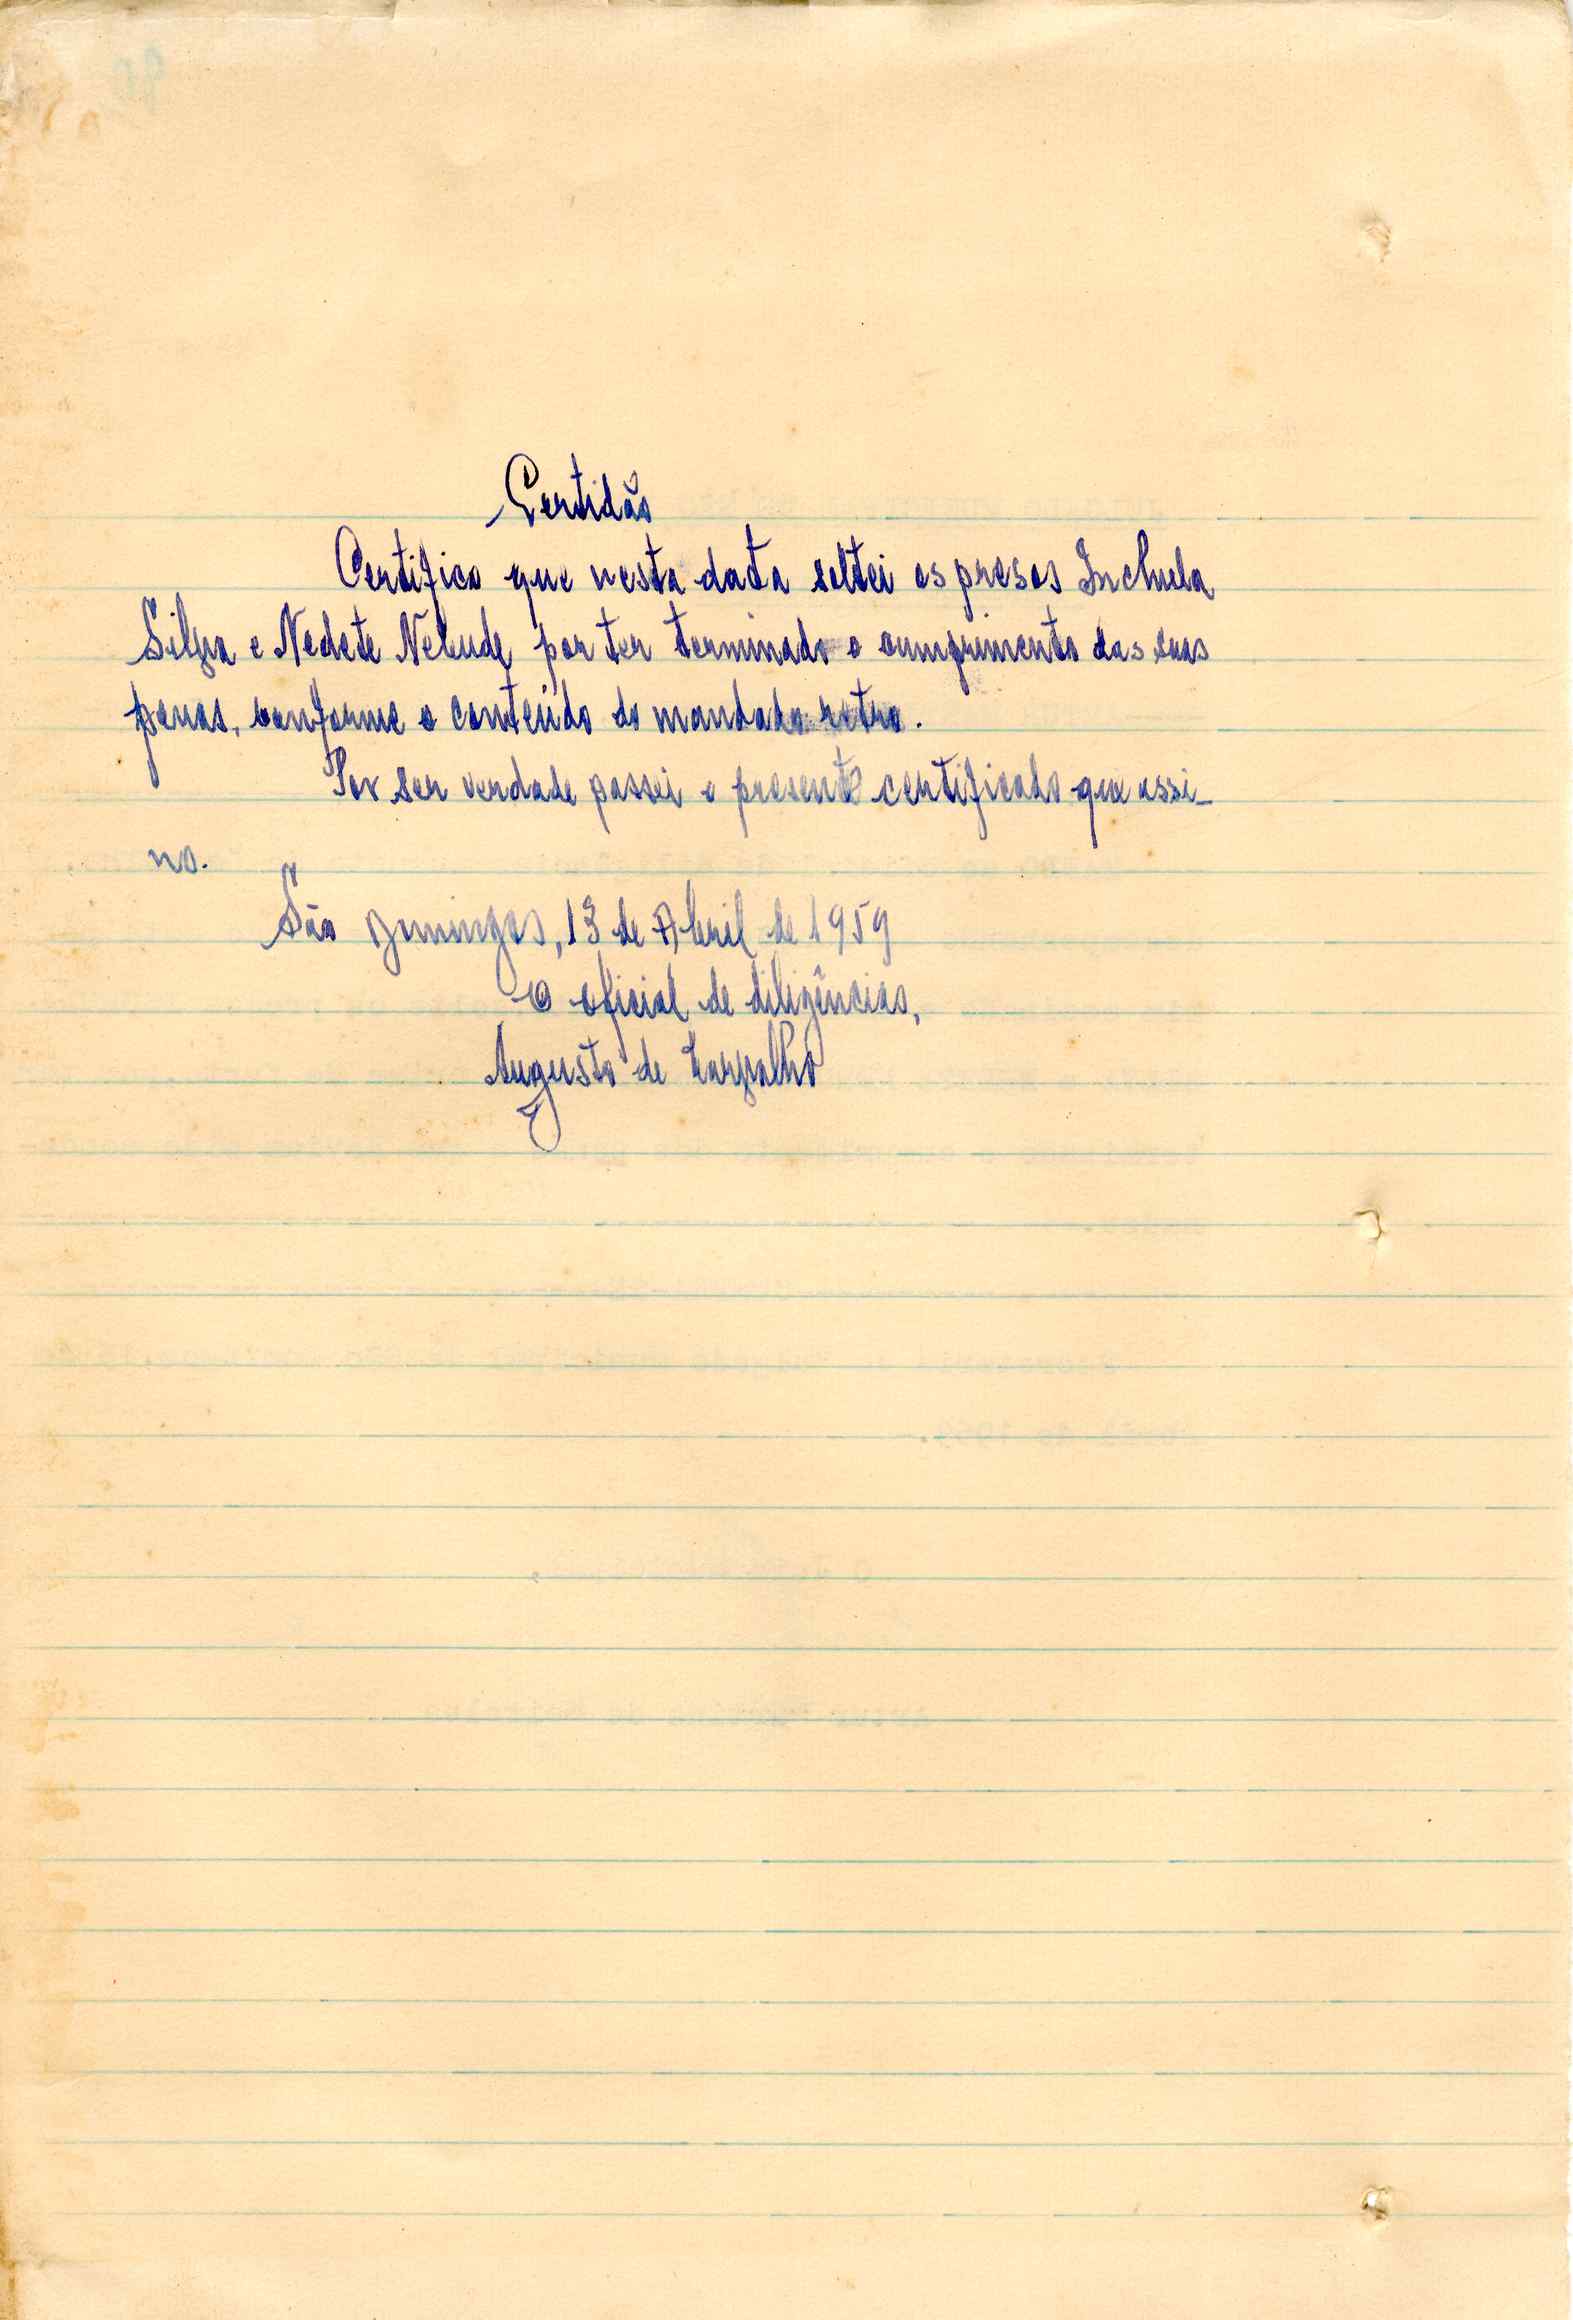 Certidão
Certifico que nesta data soltei os presos Inchula
Silva e Nedete Nelude por ter terminado o cumprimento das suas
penas, conforme o conteúdo do mandado retro.
Por ser verdade passei o presente certificado que assi-
no.
São Domingos, 13 de Abril de 1959
O oficial de diligências,
Augusto de Carvalho